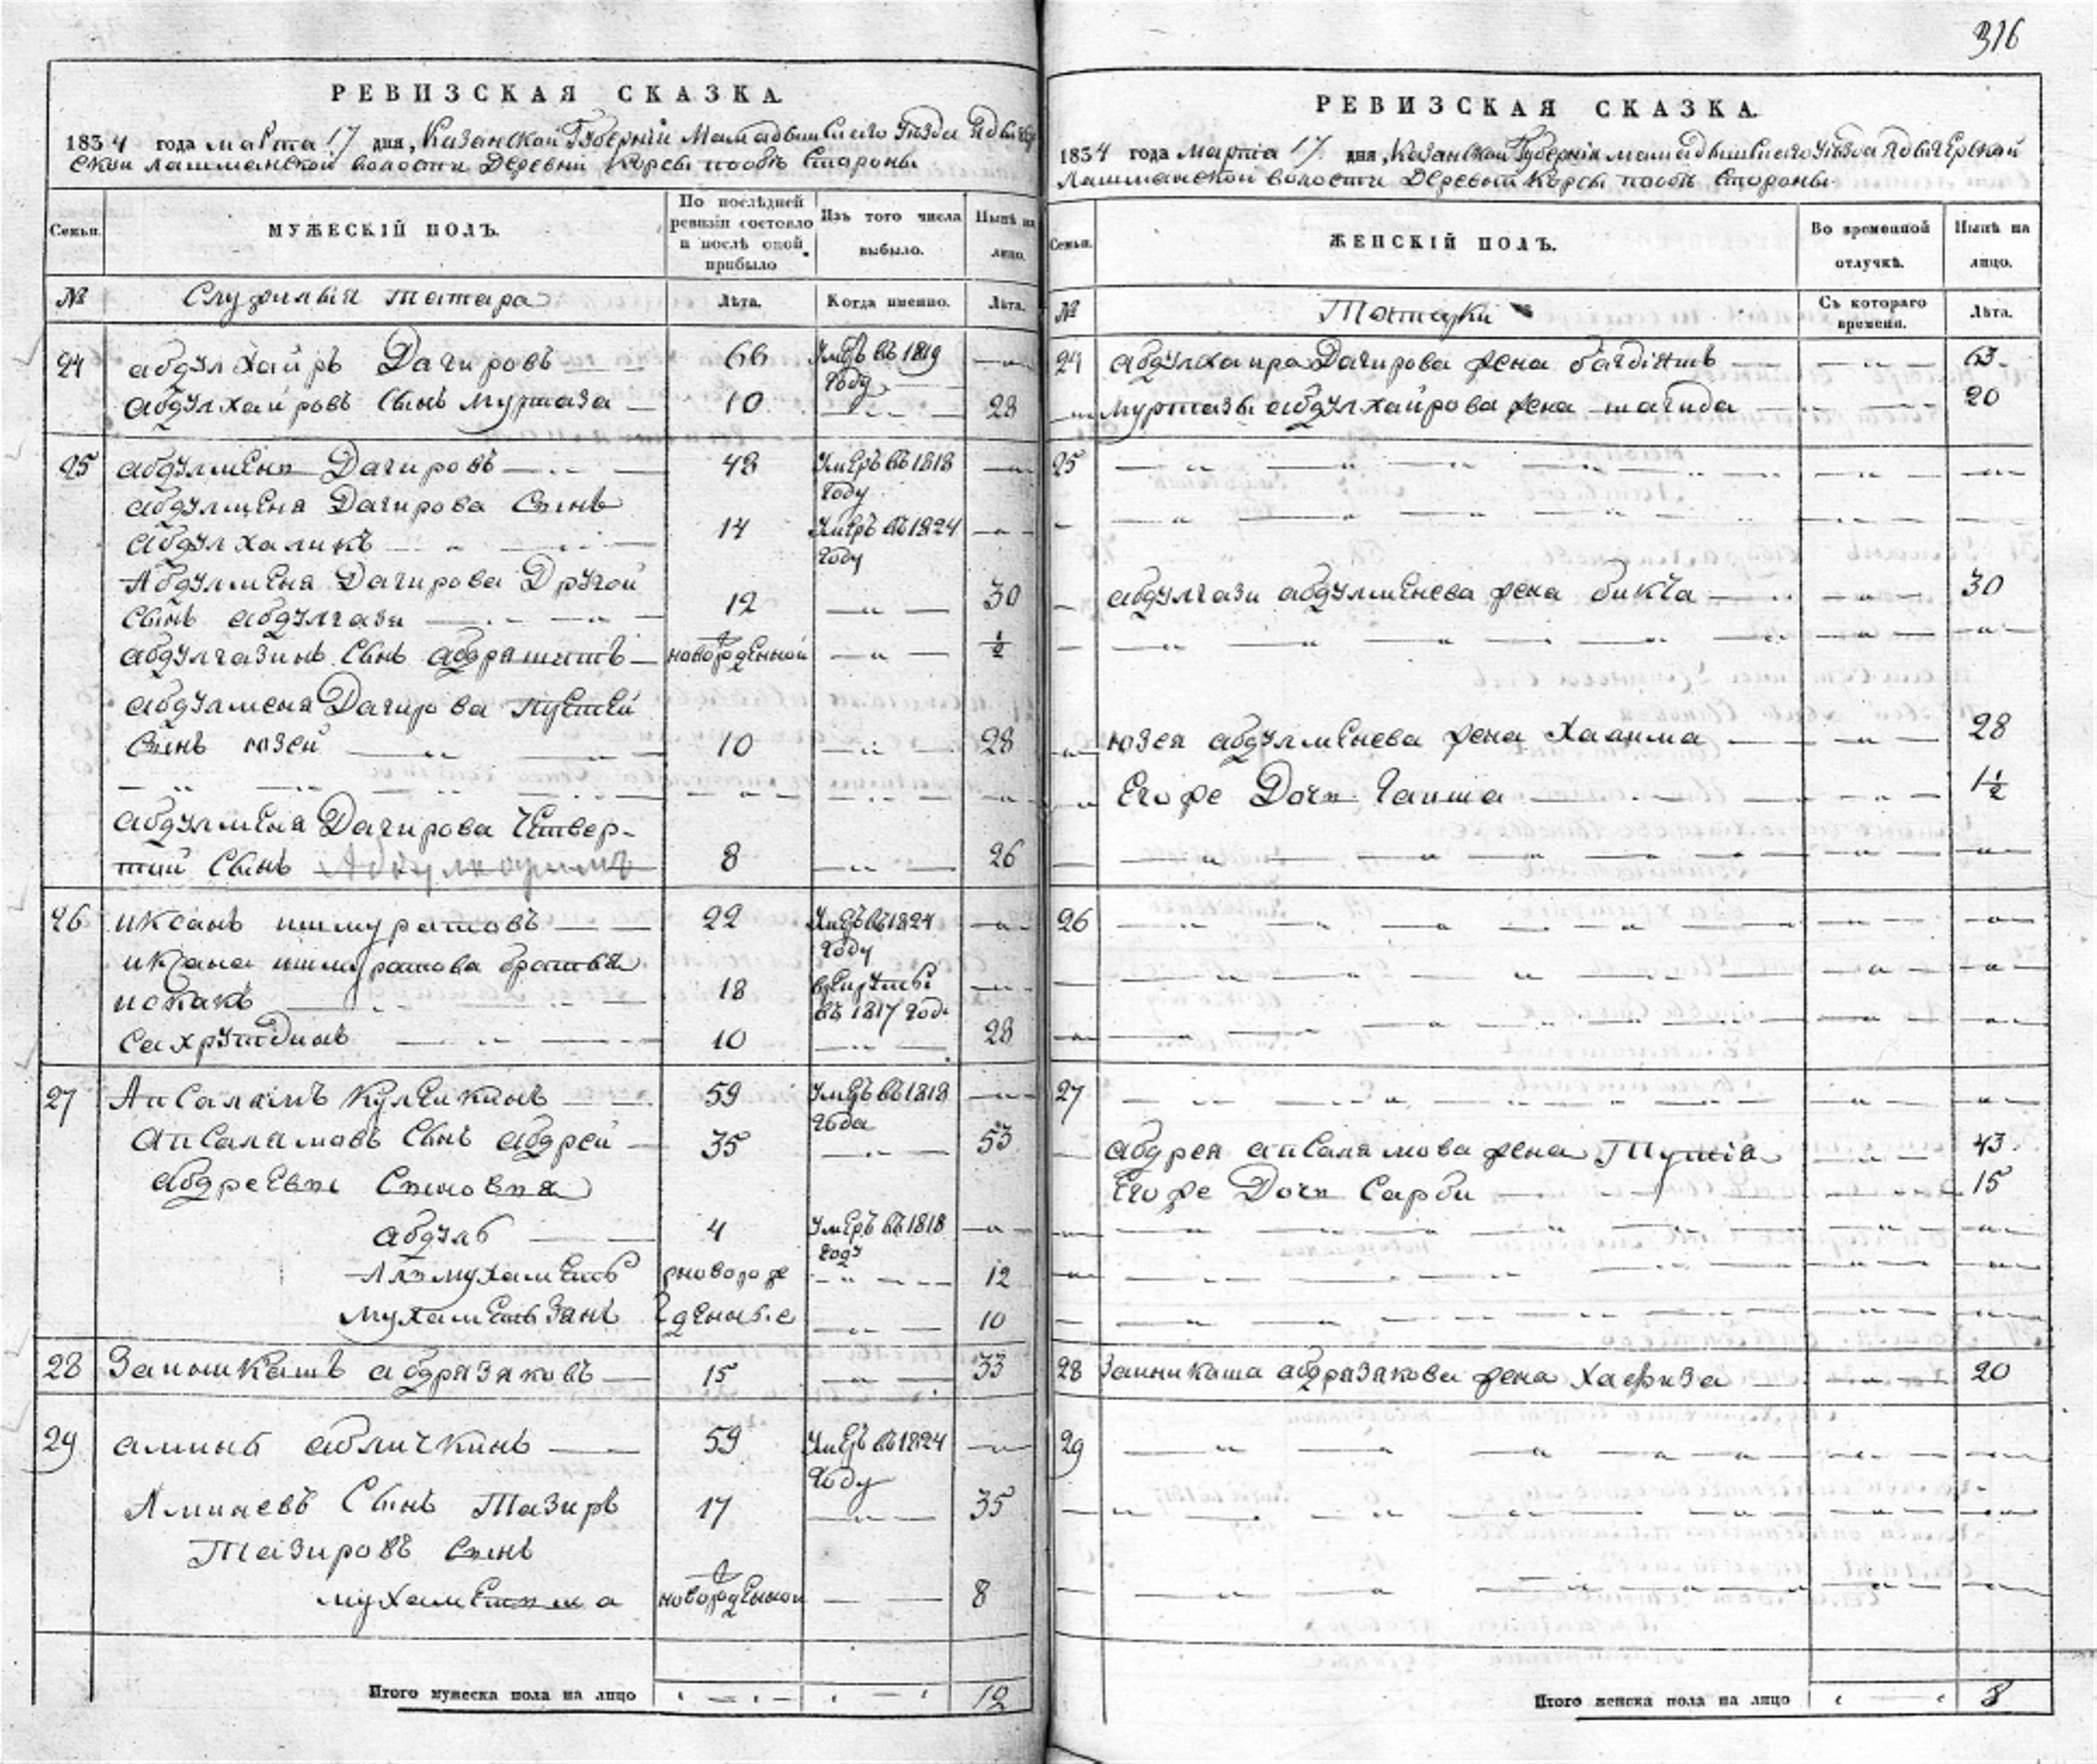 316
РЕВИЗСКАЯ СКАЗКА.
1834 года марта 17 дня, Казанской Губернiи Мамадышскаго Уезда
ской лашманской волости Деревни Корсы пообе Стороны
Семьи.
МУЖЕСКIЙ ПОЛЪ.
По послѣдней ревизiи состояло и послѣ оной прибыло
Изъ того числа выбыло.
Нынѣ на лицо.
№
Служилыя татара
Лѣта.
Когда именно.
Лѣта.
24 абдулхаиръ Дагировъ 66 Умеръ въ 1819 году
абдулхаировъ Сынъ муртаза 10 28
25 абдулменъ Дагировъ 48 Умеръ въ 1818 году
абдулменя Дагирова Сынъ
абдулхаликъ 14 Умеръ въ 1824 году
Абдулменя Дагирова Другой
Сынъ абдулгази 12 30
абдулгазинъ Сынъ новорожденной ½
абдулменя Дагирова третей
Сынъ юзей 10 28
абдулменя Дагирова Четвер-
тий Сынъ 8 26
26 иксанъ ишмуратовъ 22 Умеръ въ 1824 году
иксана ишмуратова братья
исхакъ 18 въ 1817 годе
Сахрутдинъ 10 28
27 Апсаламъ Кулейкинъ 59 Умеръ въ 1818 года
апсаламовъ Сынъ абдрей 35 53
абдреевы Сыновья
абдулъ 4 Умеръ въ 1818 году
новорож 12
мухаметзянъ денные 10
28 абдрязяковъ 15 33
29 аминъ абличкинъ 59 Умеръ въ 1824 году
Аминевъ Сынъ Тазиръ 17 35
Тазировъ Сынъ
мухаметша новорожденной 8
Итого мужеска пола на лицо 12
РЕВИЗСКАЯ СКАЗКА.
1834 года Марта 17 дня, Казанской Губернiи мамадышскаго Уезда
Лашманской волости Деревни Корсы пообе Стороны
Семьи.
ЖЕНСКIЙ ПОЛЪ.
Во временной отлучкѣ.
Нынѣ на лицо.
№
Татарки
Съ котораго времени.
Лѣта.
24 абдулхаира Дагирова жена 63
муртазы абдулхаирова жена шагида 20
25
абдулгази абдулменева жена бикѣа 30
юзея абдулменева жена Халима 28
Егоже Дочь 1½
26
27
абдрея апсалямова жена 43
Егоже Дочь Сарби 15
28 абдрязякова жена Хафиза 20
29
Итого женска пола на лицо 8